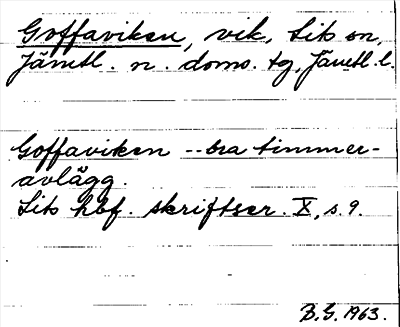 Goffaviken, vik, Lits sn,
Jämtl. n. doms. tg, Jämtl. l.
Goffaviken -- bra timmer-
avlägg.
Lits hbf. skriftser. X, s. 9.
B.G. 1963.